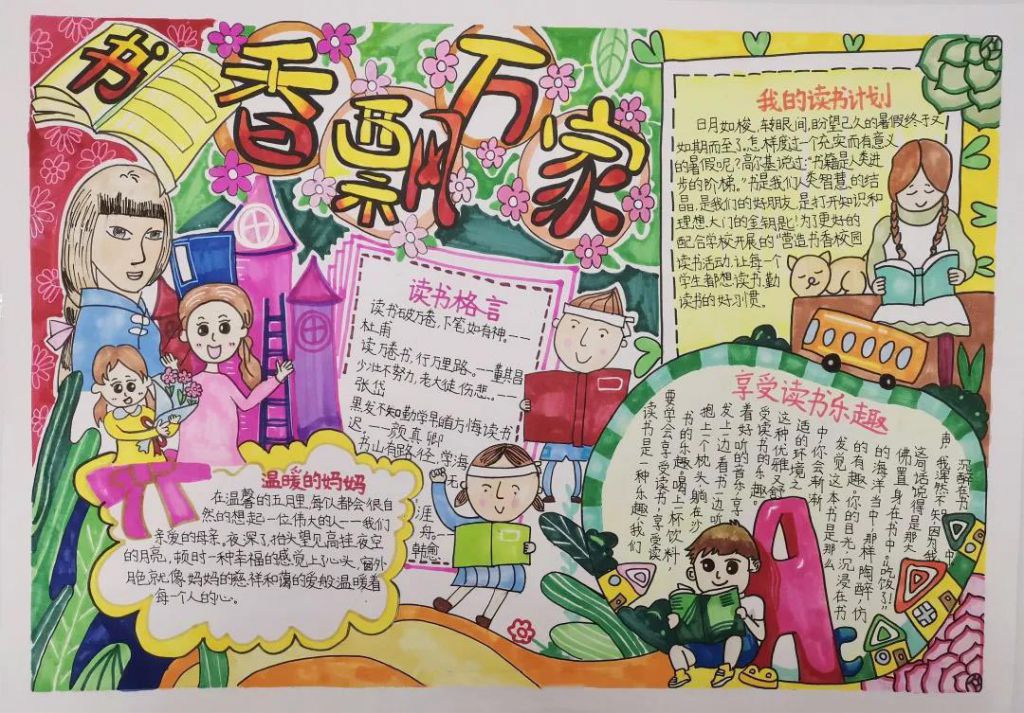 书香飘万家
我的读书计划
日月如梭,转眼间,盼望已久的暑假终于又
如期而至了,怎样度过一个充实而有意义
的暑假呢?高尔基说过:“书籍是人类进
步的阶梯。”书是我们人类智慧的结
晶,是我们的好朋友,是打开知识和
理想大门的金钥匙!为了更好的
配合学校开展的“营造书香校园
读书活动,让每一个
学生都想读书,勤
读书的好习惯。
读书格言
读书破万卷,下笔如有神。——
杜甫
读万卷书,行万里路。——董其昌
少壮不努力,老大徒伤悲。——
张岱
黑发不知勤学早,白首方悔读书
迟。——颜真卿
书山有路 径,学海
无
涯
舟。——
韩愈
享受读书乐趣
读书是一种乐趣,我们
要学会享受读书,享受读
书的乐趣。喝上一杯饮料
抱上一个枕头,躺在沙
发上一边看书一边听
着好听的音乐,享
受读书的乐趣。
这种优雅又舒
适的环境之
中你会渐渐
发觉,这本书是那么
的有趣。你的目光,沉浸在书
的海洋当中,那样陶醉,仿
佛置身在书中。“吃饭了!”
这句话说得是那大
声,我浑然不知,因为我
沉醉在书中
温暖的妈妈
在温馨的五月里,每人都会很自
然的想起一位伟大的人——我们
亲爱的母亲,夜深了,抬头望见高挂夜空
的月亮,顿时一种幸福的感觉上心头,窗外
月色就像妈妈的慈祥和蔼的爱般温暖着
每一个人的心。